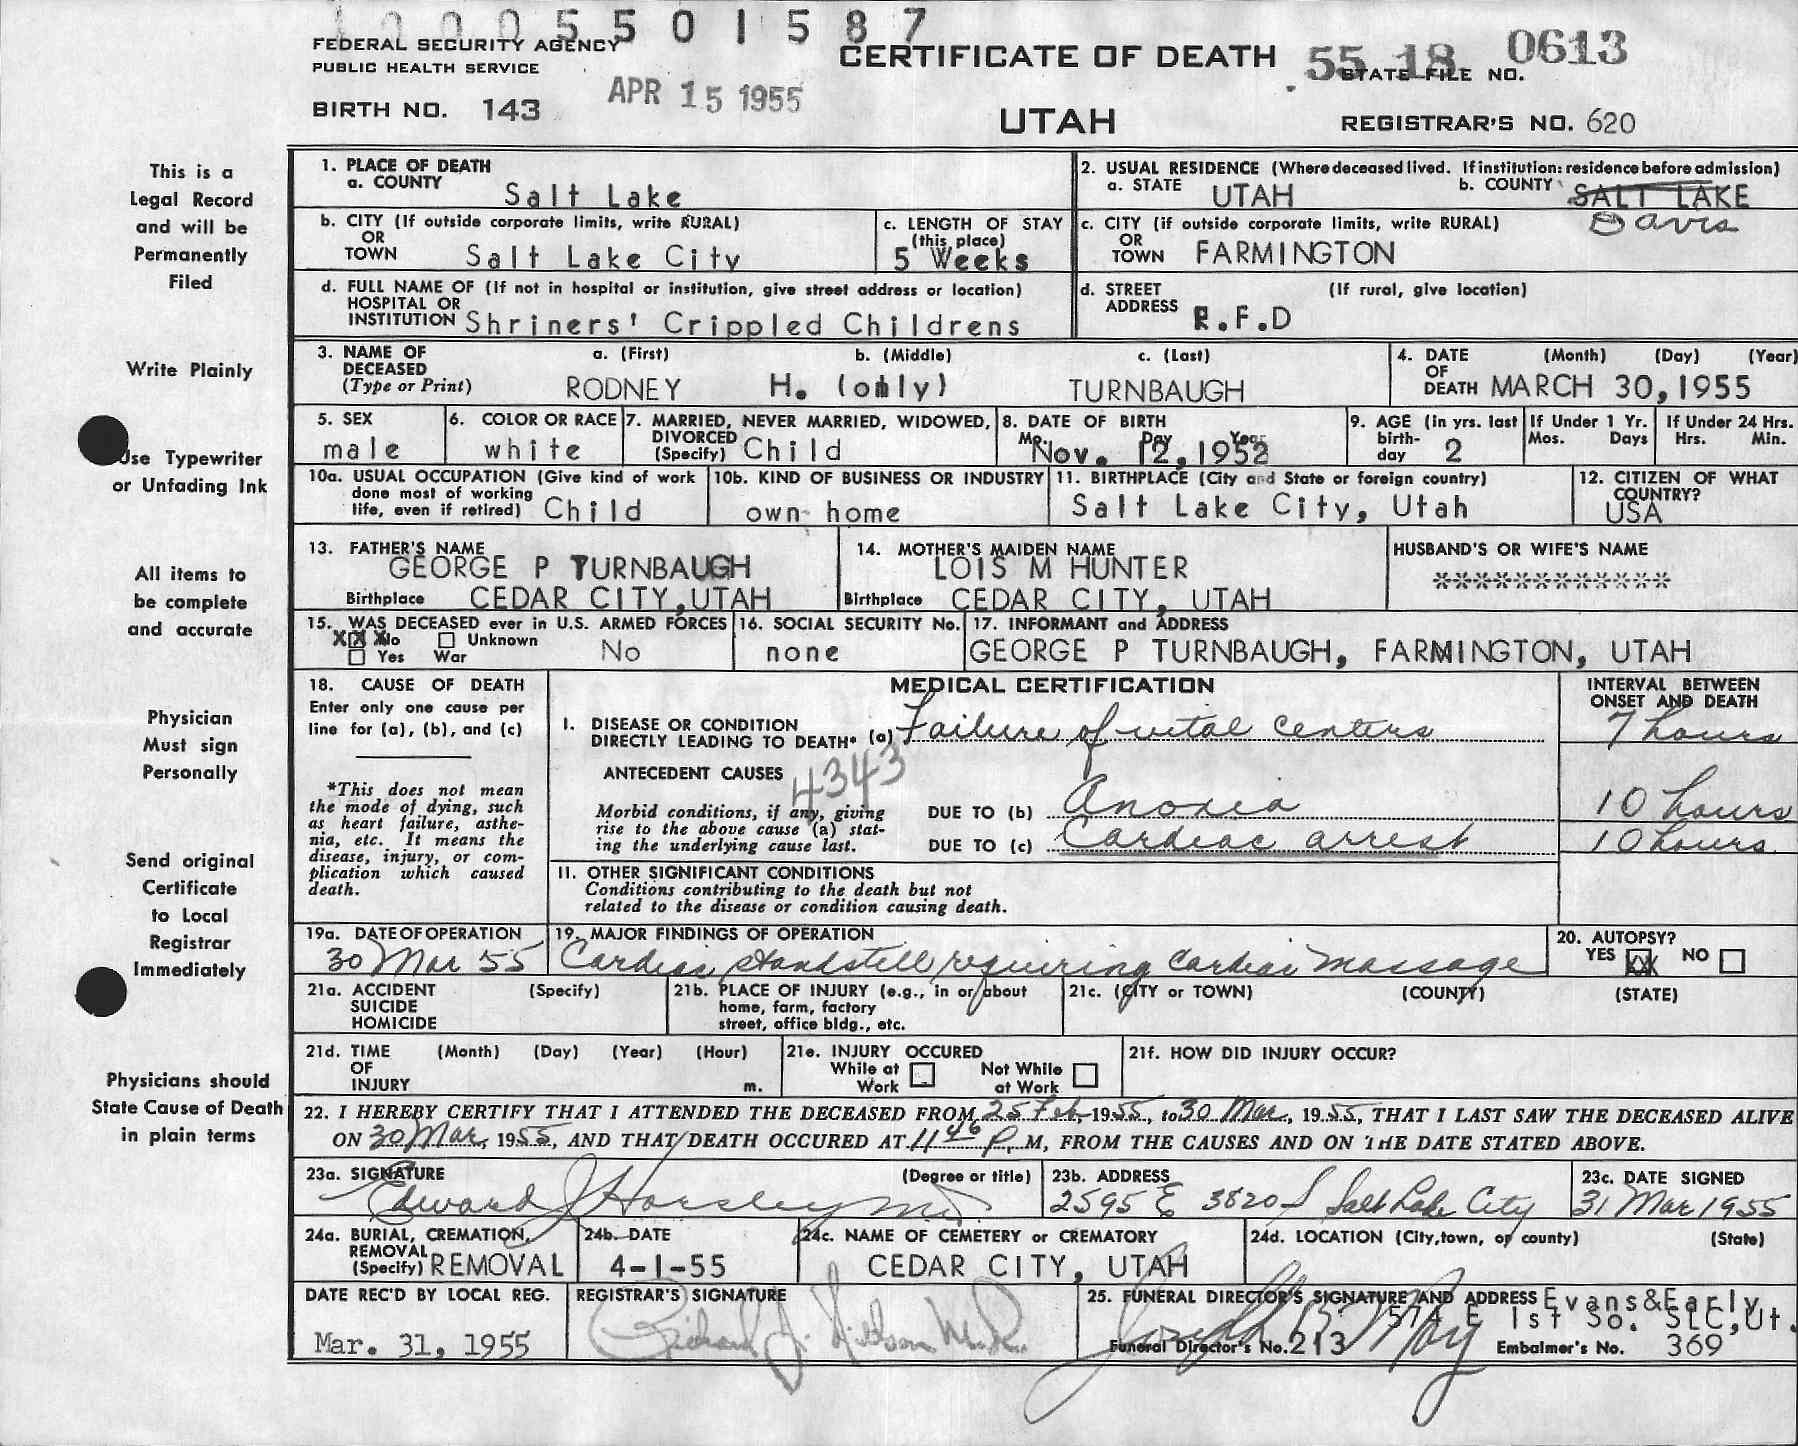 10005501587
FEDERAL SECURITY AGENCY
PUBLIC HEALTH SERVICE
CERTIFICATE OF DEATH
55 18 0613
STATE FILE NO.
BIRTH NO. 143
APR 15 1955
UTAH
REGISTRAR'S NO. 620
This is a
Legal Record
and will be
Permanently
Filed
Write Plainly
Use Typewriter
or Unfading Ink
All items to
be complete
and accurate
Physician
Must sign
Personally
Send original
Certificate
to Local
Registrar
Immediately
Physicians should
State Cause of Death
in plain terms
1. PLACE OF DEATH
a. COUNTY Salt Lake
2. USUAL RESIDENCE (Where deceased lived. If institution: residence before admission)
a. STATE UTAH b. COUNTY SALT LAKE
Davis
b. CITY (If outside corporate limits, write RURAL)
OR
TOWN Salt Lake City
c. LENGTH OF STAY
(this place)
5 Weeks
c. CITY (if outside corporate limits, write RURAL)
OR
TOWN FARMINGTON
d. FULL NAME OF (If not in hospital or institution, give street address or location)
HOSPITAL OR
INSTITUTION Shriners' Crippled Childrens
d. STREET (If rural, give location)
ADDRESS R.F.D
3. NAME OF
DECEASED
(Type or Print)
a. (First) b. (Middle) c. (Last)
RODNEY H. (only) TURNBAUGH
4. DATE (Month) (Day) (Year)
OF
DEATH MARCH 30, 1955
5. SEX
male
6. COLOR OR RACE
white
7. MARRIED, NEVER MARRIED, WIDOWED,
DIVORCED
(Specify) Child
8. DATE OF BIRTH
Mo. Day Year
Nov. 12, 1952
9. AGE (in yrs. last
birth-
day 2
If Under 1 Yr.
Mos. Days
If Under 24 Hrs.
Hrs. Min.
10a. USUAL OCCUPATION (Give kind of work
done most of working
life, even if retired) Child
10b. KIND OF BUSINESS OR INDUSTRY
own home
11. BIRTHPLACE (City and State or foreign country)
Salt Lake City, Utah
12. CITIZEN OF WHAT
COUNTRY?
USA
13. FATHER'S NAME
GEORGE P TURNBAUGH
Birthplace CEDAR CITY, UTAH
14. MOTHER'S MAIDEN NAME
LOIS M HUNTER
Birthplace CEDAR CITY, UTAH
HUSBAND'S OR WIFE'S NAME
************
15. WAS DECEASED ever in U.S. ARMED FORCES
XX No Unknown
Yes War No
16. SOCIAL SECURITY No.
none
17. INFORMANT and ADDRESS
GEORGE P TURNBAUGH, FARMINGTON, UTAH
18. CAUSE OF DEATH
Enter only one cause per
line for (a), (b), and (c)
*This does not mean
the mode of dying, such
as heart failure, asthe-
nia, etc. It means the
disease, injury, or com-
plication which caused
death.
MEDICAL CERTIFICATION
INTERVAL BETWEEN
ONSET AND DEATH
I. DISEASE OR CONDITION
DIRECTLY LEADING TO DEATH* (a) Failure of vital centers 7 hours
ANTECEDENT CAUSES 4343
Morbid conditions, if any, giving
rise to the above cause (a) stat-
ing the underlying cause last.
DUE TO (b) Anoxia 10 hours
DUE TO (c) Cardiac arrest 10 hours
11. OTHER SIGNIFICANT CONDITIONS
Conditions contributing to the death but not
related to the disease or condition causing death.
19a. DATE OF OPERATION
30 Mar 55
19. MAJOR FINDINGS OF OPERATION
Cardiac standstill requiring cardiac massage
20. AUTOPSY?
YES XX NO
21a. ACCIDENT (Specify)
SUICIDE
HOMICIDE
21b. PLACE OF INJURY (e.g., in or about
home, farm, factory
street, office bldg., etc.
21c. (CITY or TOWN) (COUNTY) (STATE)
21d. TIME (Month) (Day) (Year) (Hour)
OF
INJURY m.
21e. INJURY OCCURED
While at Not While
Work at Work
21f. HOW DID INJURY OCCUR?
22. I HEREBY CERTIFY THAT I ATTENDED THE DECEASED FROM 25 Feb, 1955, to 30 Mar, 1955, THAT I LAST SAW THE DECEASED ALIVE
ON 30 Mar, 1955, AND THAT DEATH OCCURED AT 11 46 P. M, FROM THE CAUSES AND ON THE DATE STATED ABOVE.
23a. SIGNATURE (Degree or title)
Edward J Horsley MD
23b. ADDRESS
2595 E 3820 S Salt Lake City
23c. DATE SIGNED
31 Mar 1955
24a. BURIAL, CREMATION,
REMOVAL
(Specify) REMOVAL
24b. DATE
4-1-55
24c. NAME OF CEMETERY or CREMATORY
CEDAR CITY, UTAH
24d. LOCATION (City, town, or county) (State)
DATE REC'D BY LOCAL REG.
Mar. 31, 1955
REGISTRAR'S SIGNATURE
Richard J.
25. FUNERAL DIRECTOR'S SIGNATURE AND ADDRESS Evans&Early
574 E 1st So. SLC,Ut.
Funeral Director's No. 213
Embalmer's No. 369